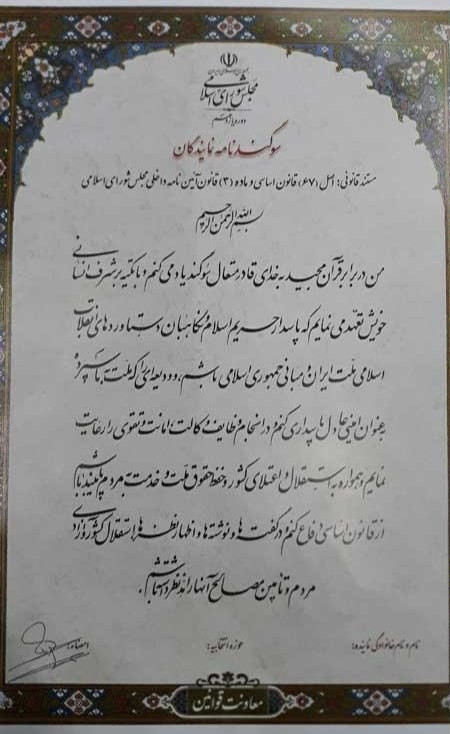 جمهوری اسلامی ایران
مجلس شورای اسلامی
دوره یازدهم
سوگندنامه نمایندگان
مستند قانونی: اصل (۶۷) قانون اساسی و ماده (۳) قانون آئین نامه داخلی مجلس شورای اسلامی
بسم الله الرحمن الرحیم
من در برابر قرآن مجید به خدای قادر متعال سوگند یاد می کنم و با تکیه بر شرف انسانی
خویش تعهد می نمایم که پاسدار حریم اسلام و نگاهبان دستاوردهای انقلاب
اسلامی ملت ایران و مبانی جمهوری اسلامی باشم، و ودیعه ای را که ملت به ما سپرده
به عنوان امینی عادل پاسداری کنم و در انجام وظایف وکالت امانت و تقوی را رعایت
نمایم و همواره به استقلال و اعتلای کشور و حفظ حقوق ملت و خدمت به مردم پایبند باشم
از قانون اساسی دفاع کنم و در گفته ها و نوشته ها و اظهار نظرها استقلال کشور و آزادی
مردم و تامین مصالح آنها را مد نظر داشته باشم.
نام و نام خانوادگی نماینده: حوزه انتخابیه: امضاء:
معاونت قوانین